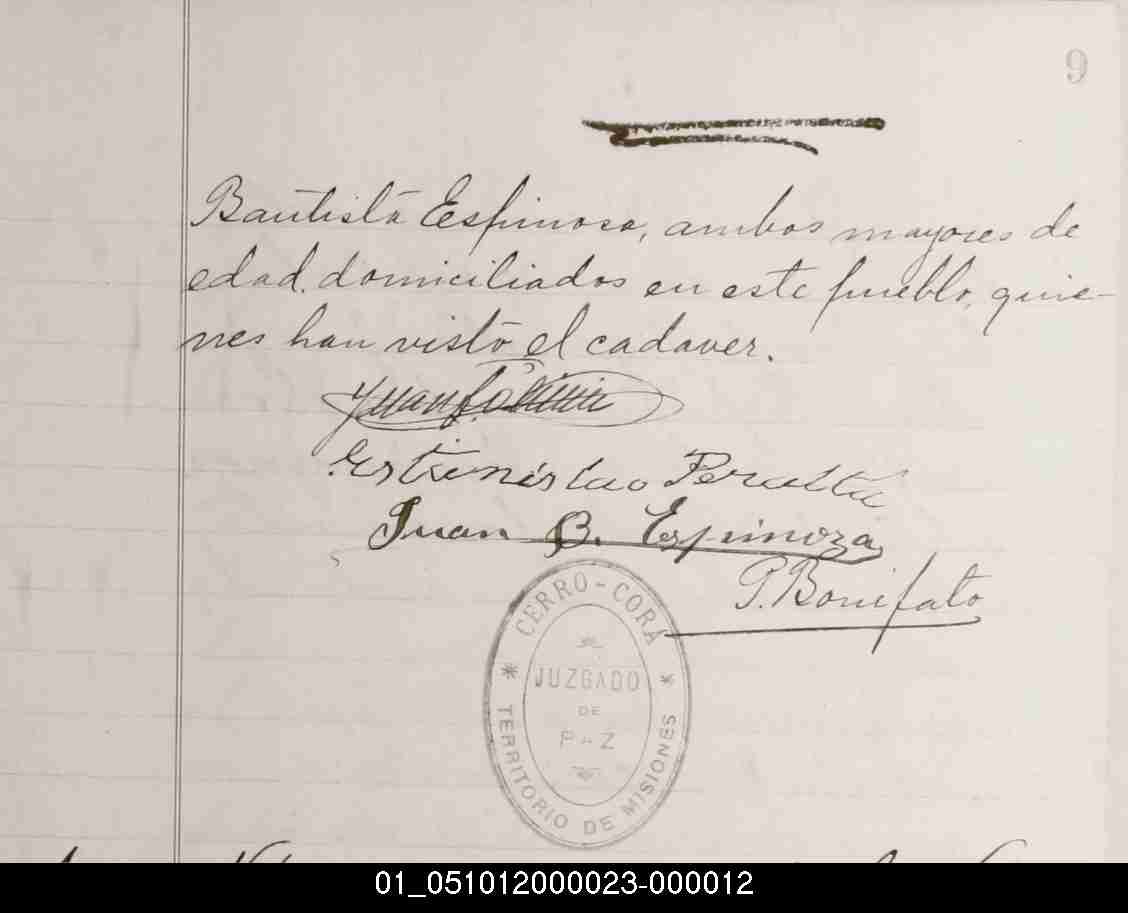 9
Bautista Espinosa, ambos mayores de
edad, domiciliados en este pueblo, quie-
nes han visto el cadaver.
Juan
Estanislao Peralta
Juan B. Espinoza
P. Bonifato
CERRO-CORÁ
JUZGADO
DE
PAZ
TERRITORIO DE MISIONES
01_051012000023-000012